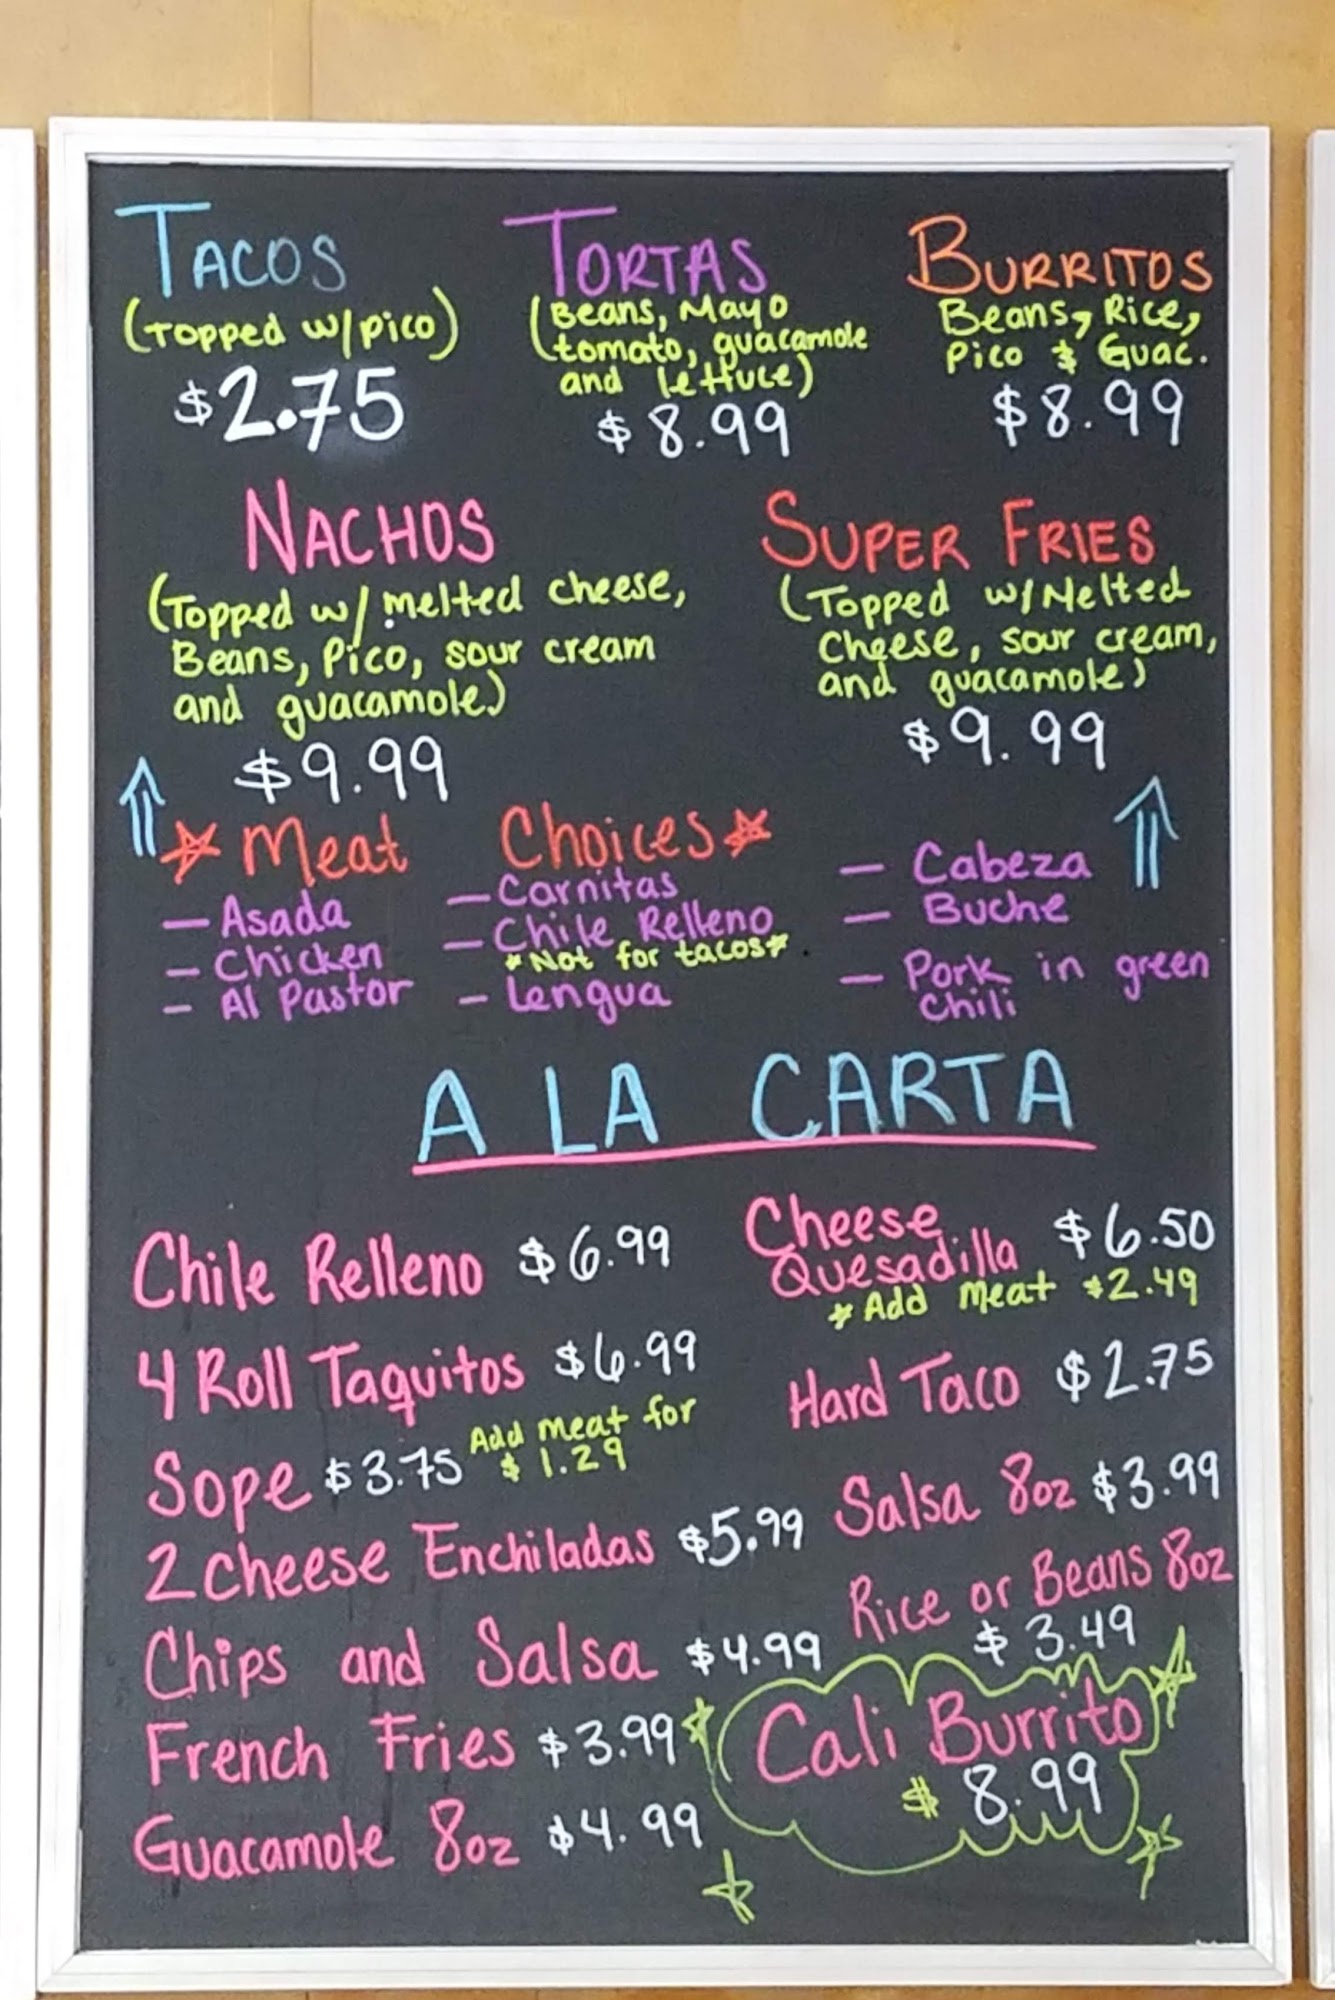 TACOS
(Topped w/pico)
$2.75
TORTAS
(Beans, Mayo
tomato, guacamole
and lettuce)
$8.99
BURRITOS
Beans, Rice,
Pico & Guac.
$8.99
NACHOS
(Topped w/ melted cheese,
Beans, Pico, sour cream
and guacamole)
$9.99
SUPER FRIES
(Topped w/Melted
Cheese, sour cream,
and guacamole)
$9.99
Meat Choices
- Asada
- Chicken
- Al Pastor
- Carnitas
- Chile Relleno
*Not for tacos*
- Lengua
- Cabeza
- Buche
- Pork in green
Chili
A LA CARTA
Chile Relleno $6.99
4 Roll Taquitos $6.99
Sope $3.75 Add meat for
$1.29
2 cheese Enchiladas $5.99
Chips and Salsa $4.99
French Fries $3.99
Guacamole 8oz $4.99
Cheese
Quesadilla $6.50
* Add meat $2.49
Hard Taco $2.75
Salsa 8oz $3.99
Rice or Beans 8oz
$3.49
Cali Burrito
$8.99